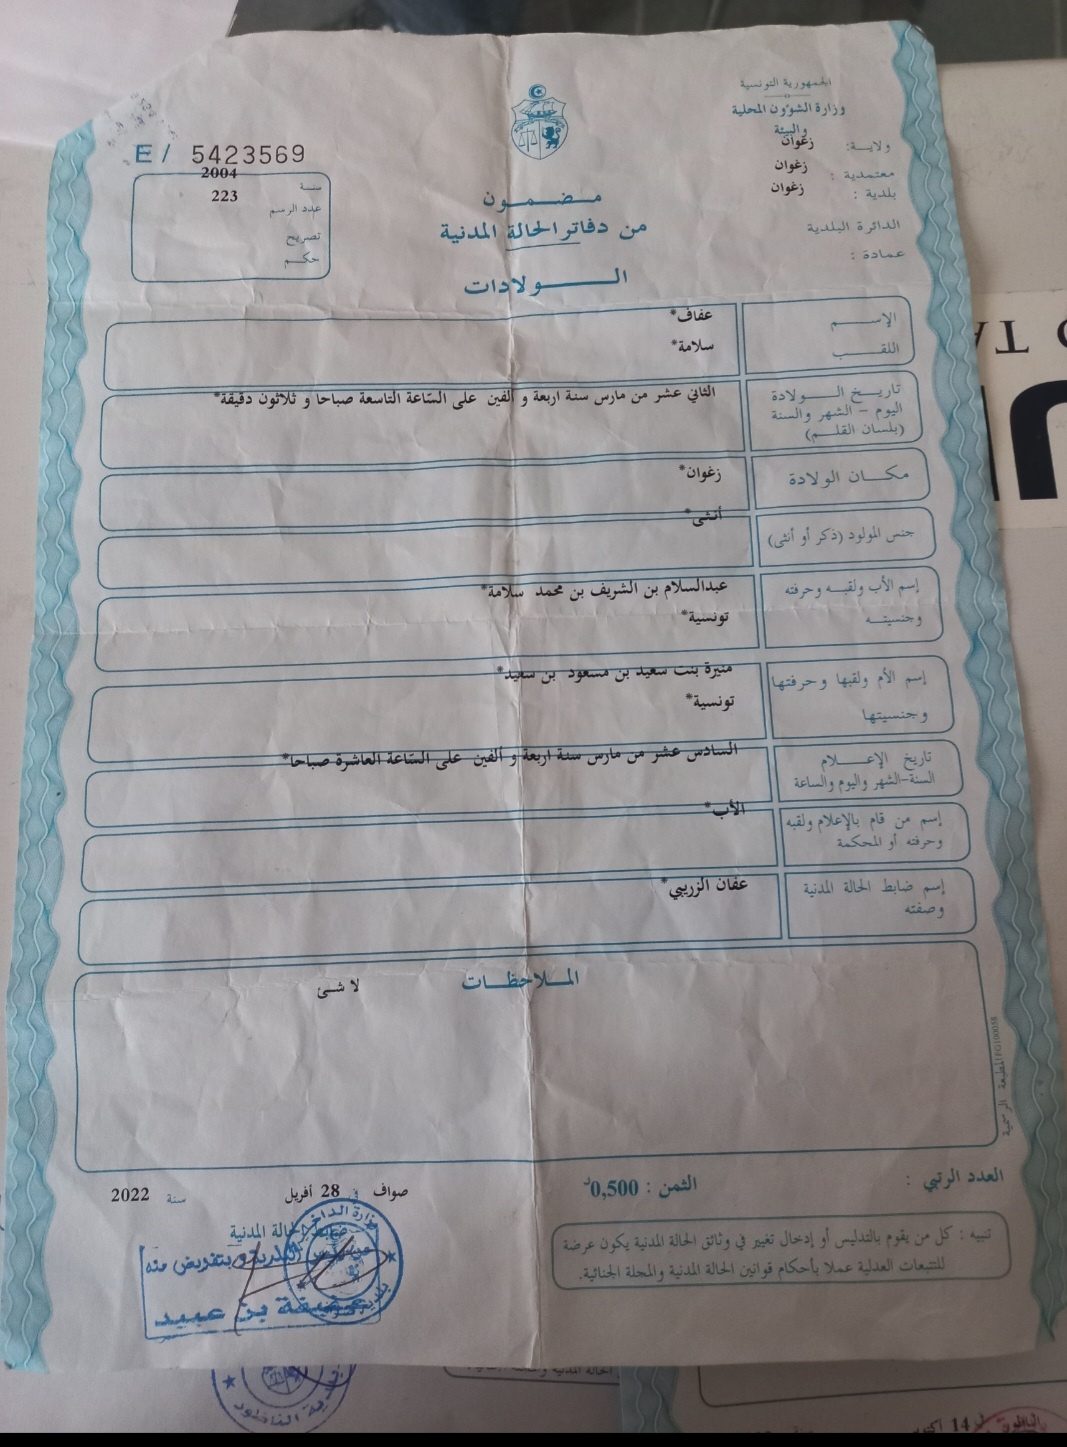 الجمهورية التونسية
وزارة الشؤون المحلية
والبيئة
ولاية: زغوان
معتمدية : زغوان
بلدية : زغوان
الدائرة البلدية
عمادة :
E/ 5423569
سنة 2004
عدد الرسم 223
تصريح
حكم
مضمون
من دفاتر الحالة المدنية
الولادات
الإسم عفاف*
اللقب سلامة*
تاريخ الولادة الثاني عشر من مارس سنة اربعة و ألفين على الساعة التاسعة صباحا و ثلاثون دقيقة*
اليوم - الشهر والسنة
(بلسان القلم)
مكان الولادة زغوان*
جنس المولود (ذكر أو أنثى) أنثى*
إسم الأب ولقبه وحرفته عبدالسلام بن الشريف بن محمد سلامة*
وجنسيته تونسية*
إسم الأم ولقبها وحرفتها منيرة بنت سعيد بن مسعود بن سعيد*
وجنسيتها تونسية*
تاريخ الإعلام السادس عشر من مارس سنة اربعة و ألفين على الساعة العاشرة صباحا*
السنة-الشهر واليوم والساعة
إسم من قام بالإعلام ولقبه الأب*
وحرفته أو المحكمة
إسم ضابط الحالة المدنية عفان الزريبي*
وصفته
الملاحظات
لا شئ
المطبعة الرسمية
العدد الرتبي :
الثمن : 0,500د
صواف في 28 أفريل سنة 2022
ضابط الحالة المدنية
تنبيه : كل من يقوم بالتدليس أو إدخال تغيير في وثائق الحالة المدنية يكون عرضة
للتتبعات العدلية عملا بأحكام قوانين الحالة المدنية والمجلة الجنائية.
وبتفويض منه
بن عبيد
بلدية الناظور
14 أكتوبر